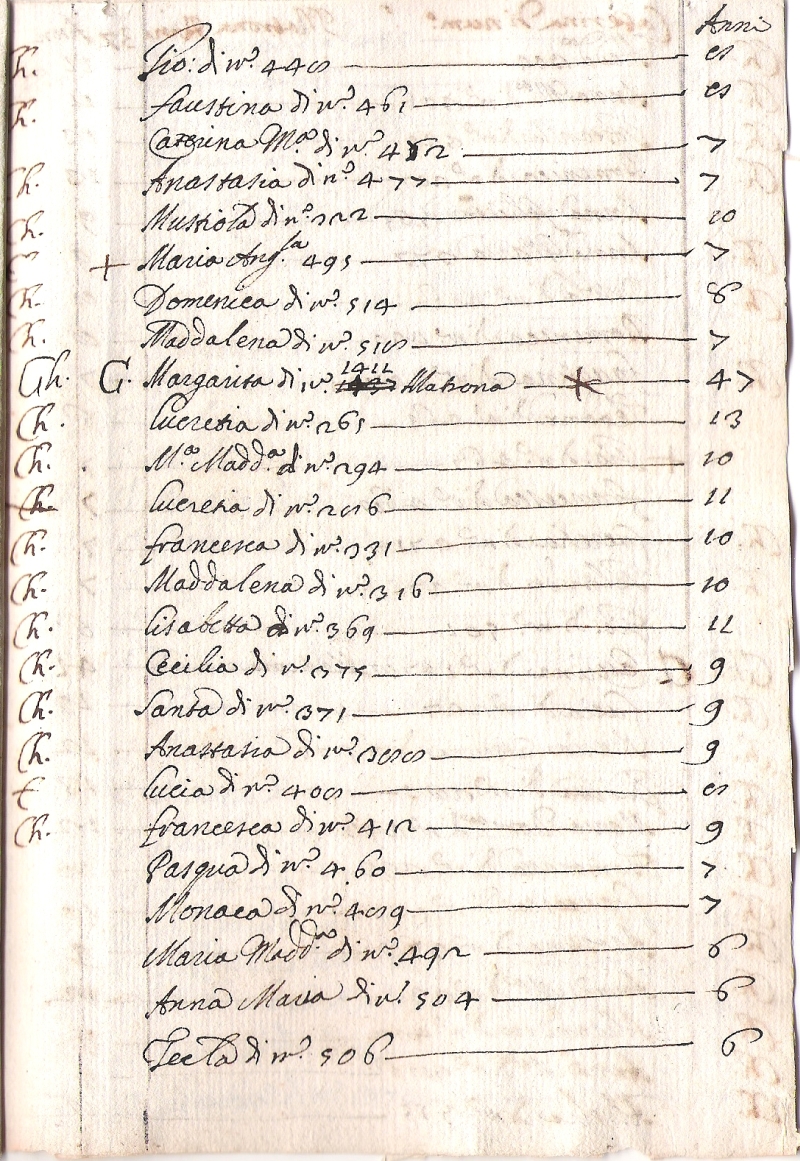 Anni
Ch. Gio: di n.º 448 8
Ch. Faustina di n.º 461 8
Caterina M.ª di n.º 462 7
Ch. Anastasia di n.º 477 7
Ch. Mustiola di n.º 322 10
+ Maria Ang.la 495 7
Ch. Domenica di n.º 514 8
Ch. Maddalena di n.º 518 7
Ch. G. Margarita di n.º 1411 Matrona 47
Ch. Lucretia di n.º 265 13
Ch. M.ª Madd.ª di n.º 294 10
Ch. Lucretia di n.º 286 11
Ch. Francesca di n.º 331 10
Ch. Maddalena di n.º 316 10
Ch. Lisabetta di n.º 369 11
Ch. Cecilia di n.º 375 9
Ch. Santa di n.º 371 9
Ch. Anastasia di n.º 388 9
Lucia di n.º 408 8
Ch. Francesca di n.º 412 9
Pasqua di n.º 460 7
Monaca di n.º 489 7
Maria Madd.ª di n.º 492 6
Anna Maria di n.º 504 6
Tecla di n.º 506 6